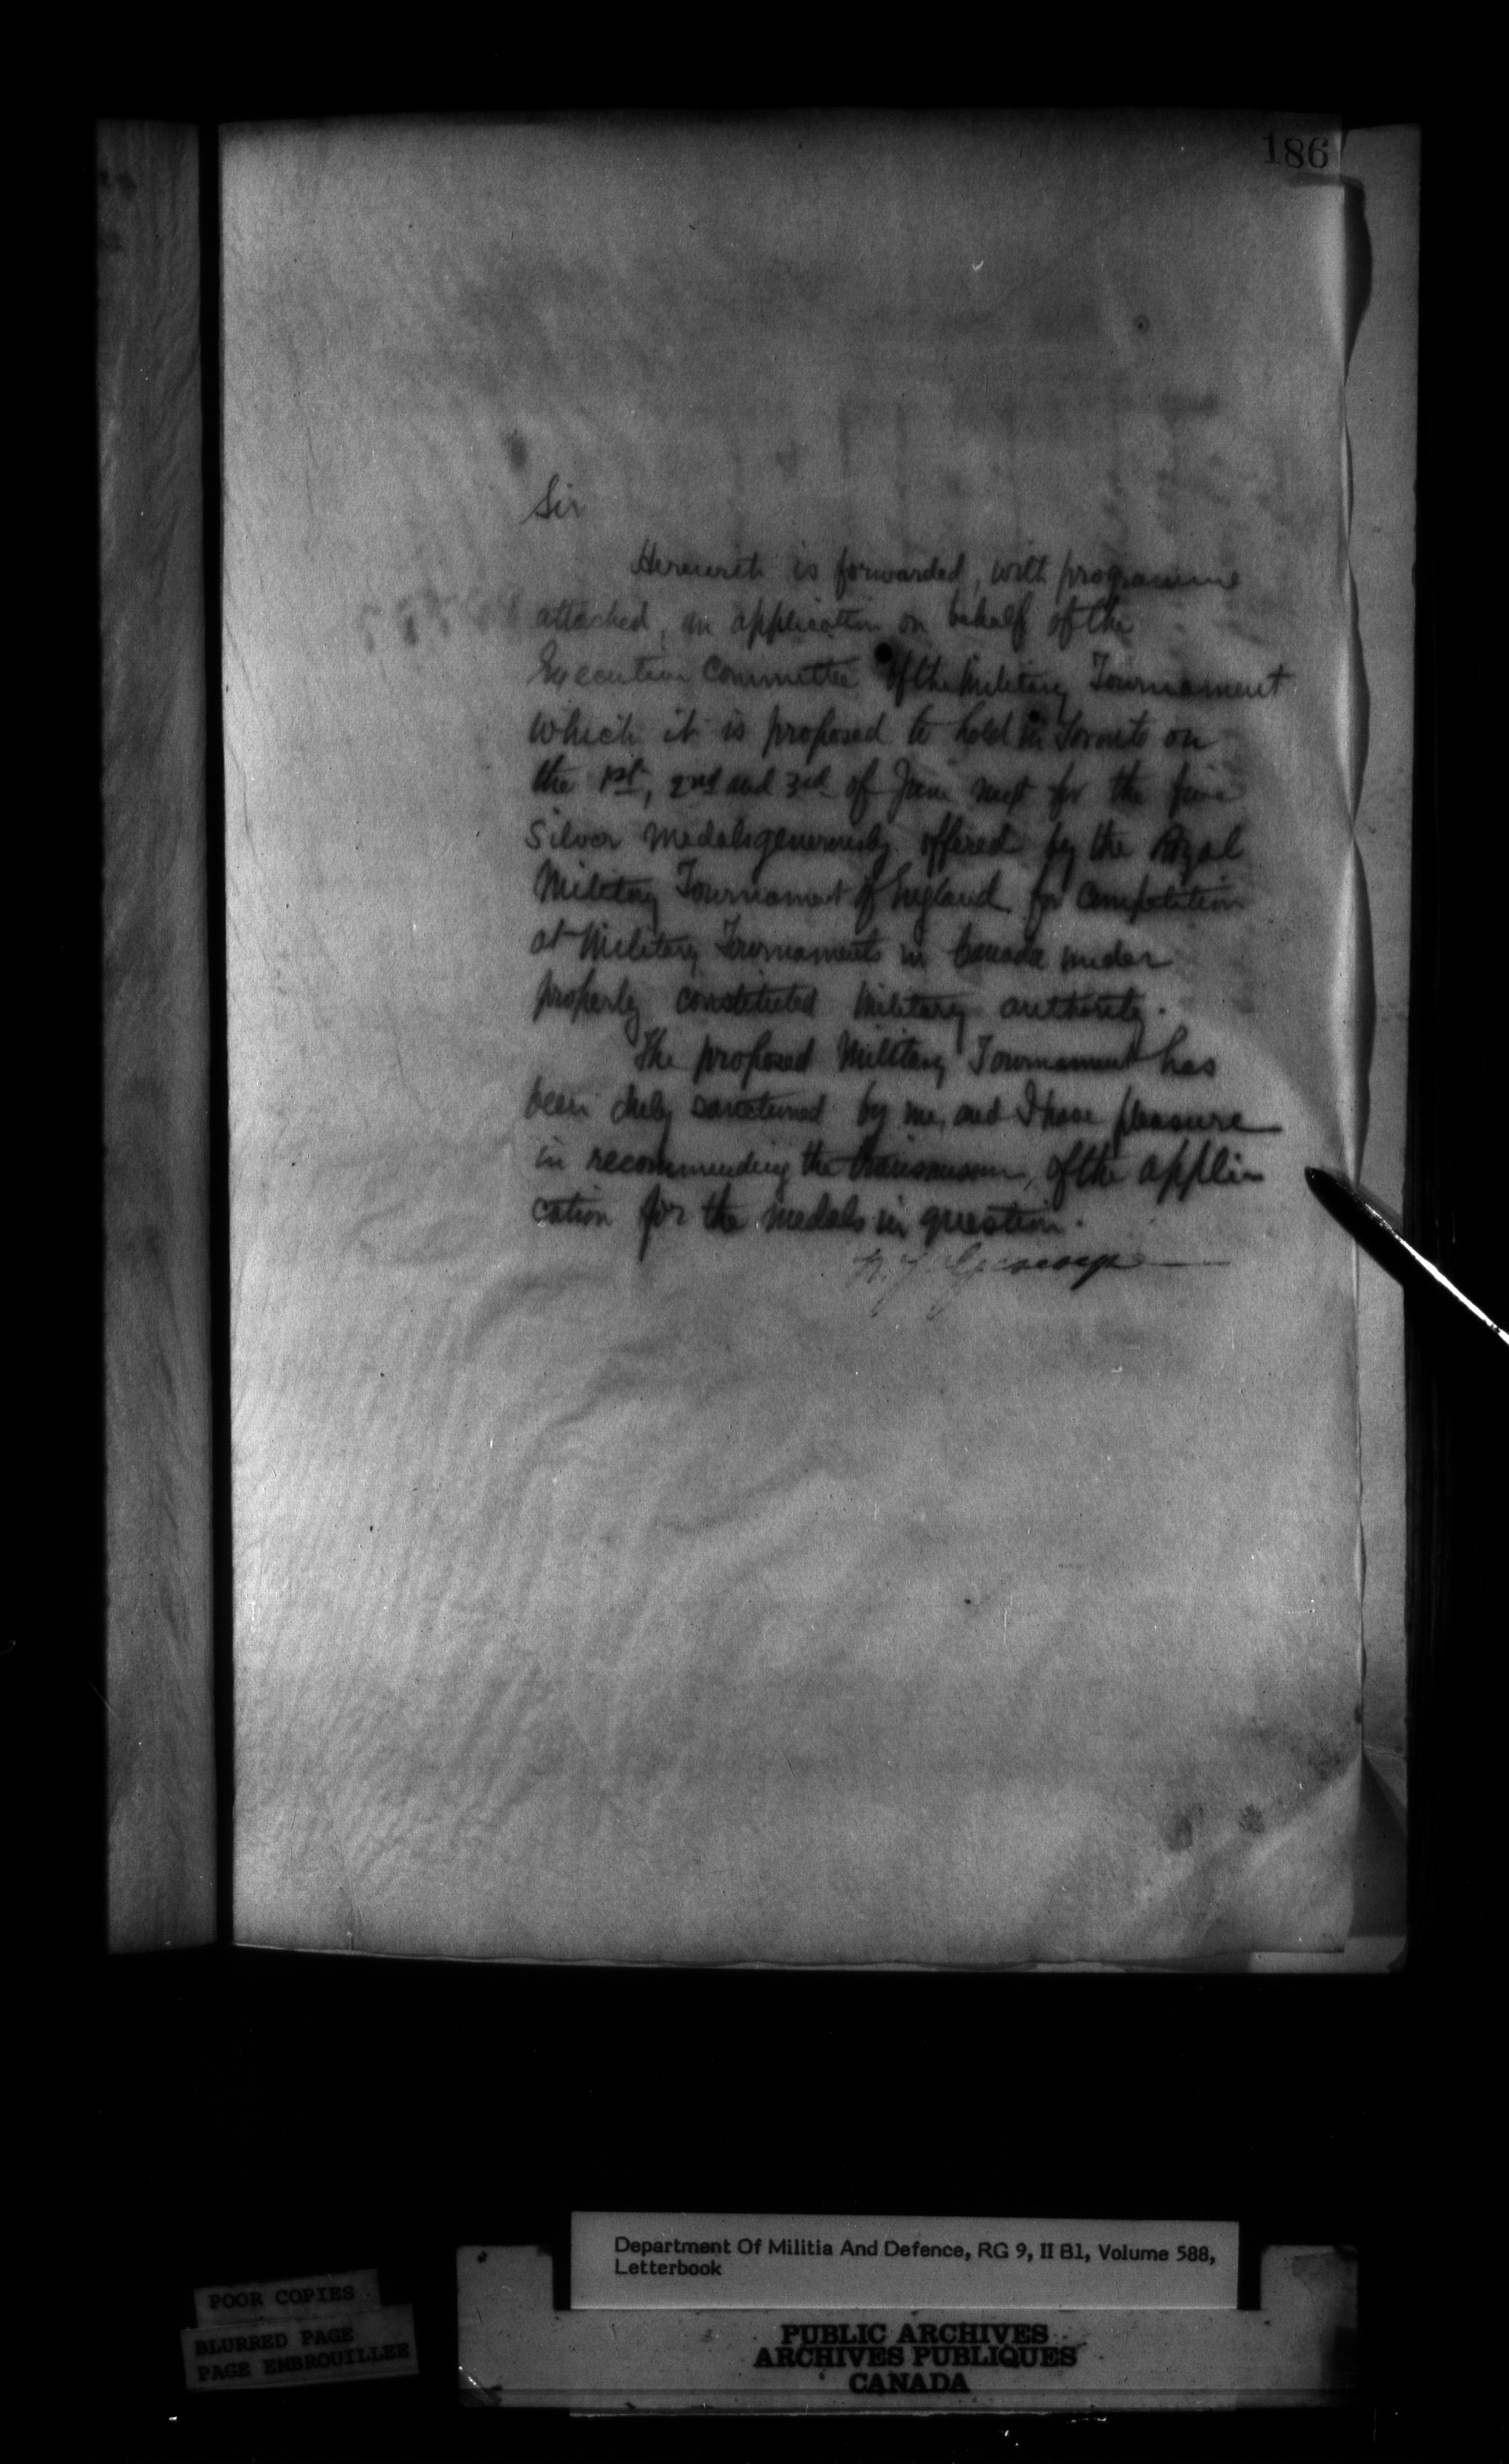 186
Sir
Herewith is forwarded, with programme
attached, an application on behalf of the
Executive Committee of the Military Tournament
which it is proposed to hold in Toronto on
the 1st, 2nd and 3rd of June next for the
Silver Medals generously offered by the Royal
Military Tournament of England for Competition
at Military Tournaments in Canada under
properly constituted Military authority.
The proposed Military Tournament has
been duly sanctioned by me, and I have pleasure
in recommending the transmission, of the appli-
cation for the medals in question.
Department Of Militia And Defence, RG 9, II B1, Volume 588,
Letterbook
POOR COPIES
BLURRED PAGE
PAGE EMBROUILLEE
PUBLIC ARCHIVES
ARCHIVES PUBLIQUES
CANADA